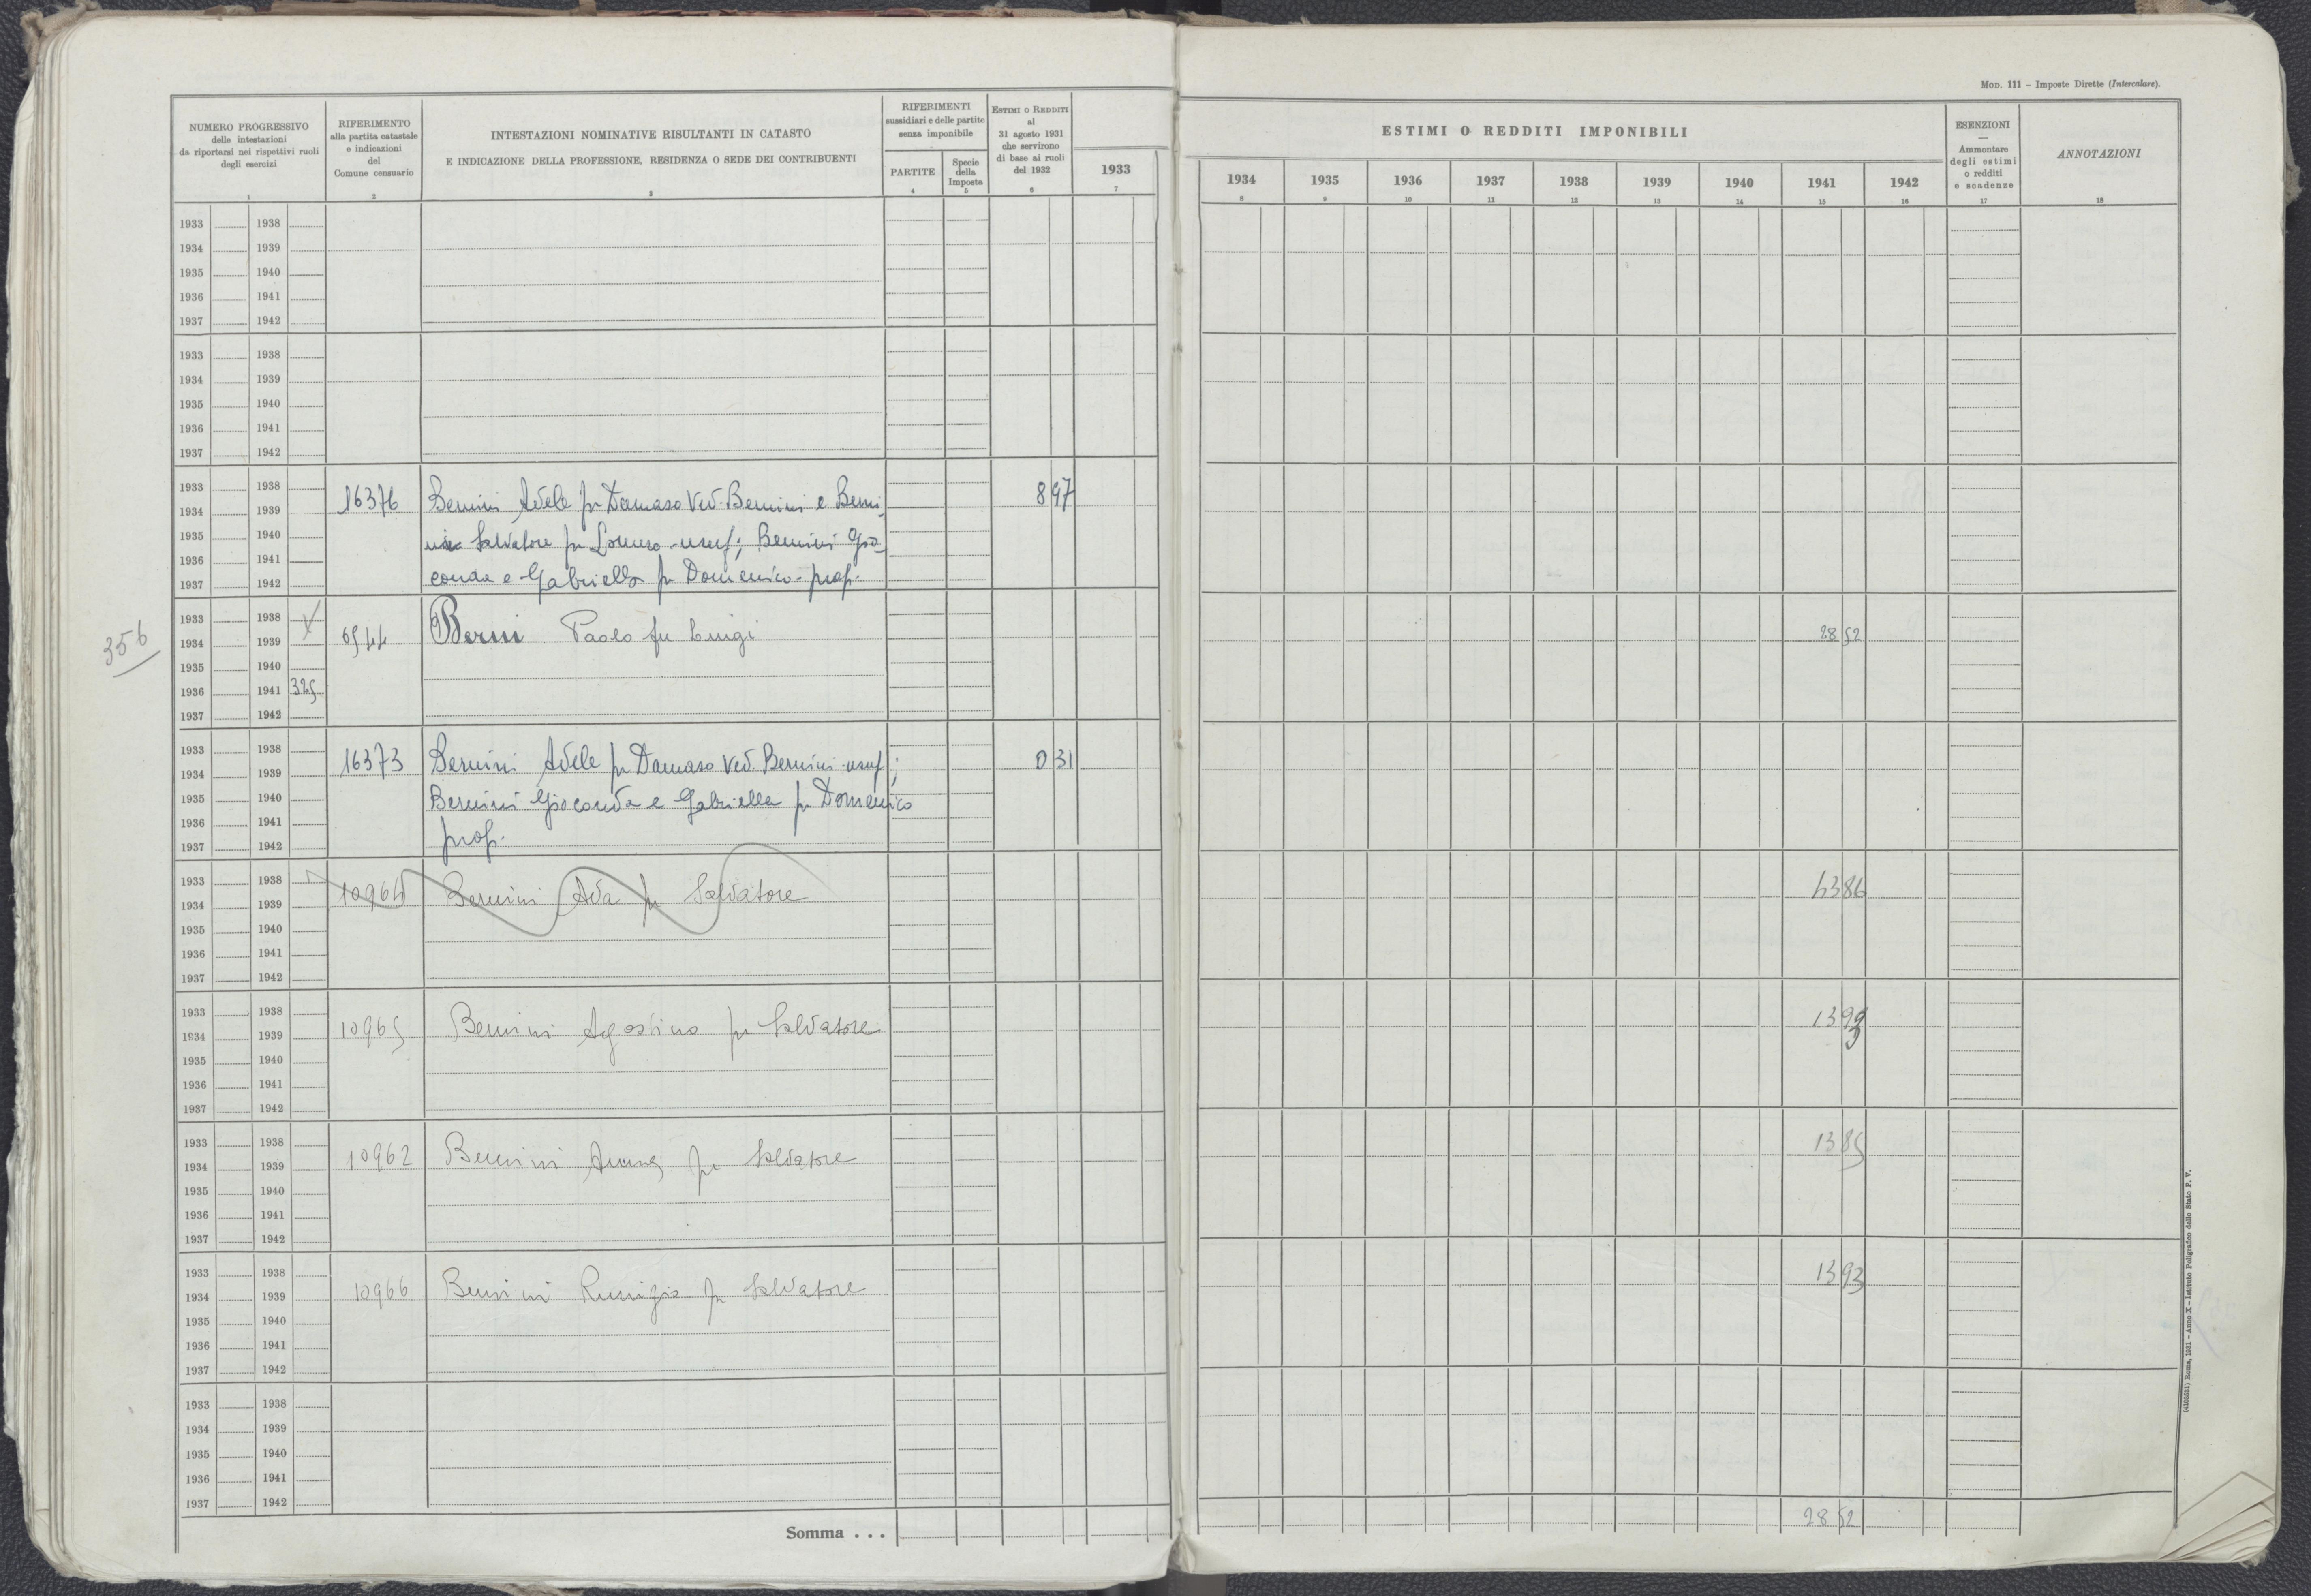 Mod. 111 – Imposte Dirette (Intercalare).
NUMERO PROGRESSIVO
delle intestazioni
da riportarsi nei rispettivi ruoli
degli esercizi
1
RIFERIMENTO
alla partita catastale
e indicazioni
del
Comune censuario
2
INTESTAZIONI NOMINATIVE RISULTANTI IN CATASTO
E INDICAZIONE DELLA PROFESSIONE, RESIDENZA O SEDE DEI CONTRIBUENTI
3
RIFERIMENTI
sussidiari e delle partite
senza imponibile
PARTITE
4
Specie
della
Imposta
5
Estimi o Redditi
al
31 agosto 1931
che servirono
di base ai ruoli
del 1932
6
1933
7
ESTIMI O REDDITI IMPONIBILI
1934 1935 1936 1937 1938 1939 1940 1941 1942
8 9 10 11 12 13 14 15 16
ESENZIONI
—
Ammontare
degli estimi
o redditi
e scadenze
17
ANNOTAZIONI
18
1933 1938
1934 1939
1935 1940
1936 1941
1937 1942
1933 1938
1934 1939
1935 1940
1936 1941
1937 1942
1933 1938
1934 1939 16376 Bernini Adele fu Damaso Ved. Bernini e Berni- 8 97
1935 1940 Salvatore fu Lorenzo - usuf; Bernini Gio
1936 1941
1937 1942 conda e Gabriella fu Domenico - prop.
356
1933 1938
1934 1939 6544 Berni Paolo fu Luigi 28 52
1935 1940
1936 1941 325
1937 1942
1933 1938
1934 1939 16373 Bernini Adele fu Damaso Ved. Bernini - usuf; 0 31
1935 1940 Bernini Gioconda e Gabriella fu Domenico
1936 1941
1937 1942 prop.
1933 1938
1934 1939 10964 Bernini Ada fu Salvatore 43 86
1935 1940
1936 1941
1937 1942
1933 1938
1934 1939 10965 Bernini Agostino fu Salvatore 13
1935 1940
1936 1941
1937 1942
1933 1938
1934 1939 10962 Bernini fu Salvatore 13 85
1935 1940
1936 1941
1937 1942
1933 1938
1934 1939 10966 Bernini Remigio fu Salvatore 13 93
1935 1940
1936 1941
1937 1942
1933 1938
1934 1939
1935 1940
1936 1941
1937 1942
Somma . . . 28 52
(4103521) Roma, 1931 – Anno X – Istituto Poligrafico dello Stato P. V.